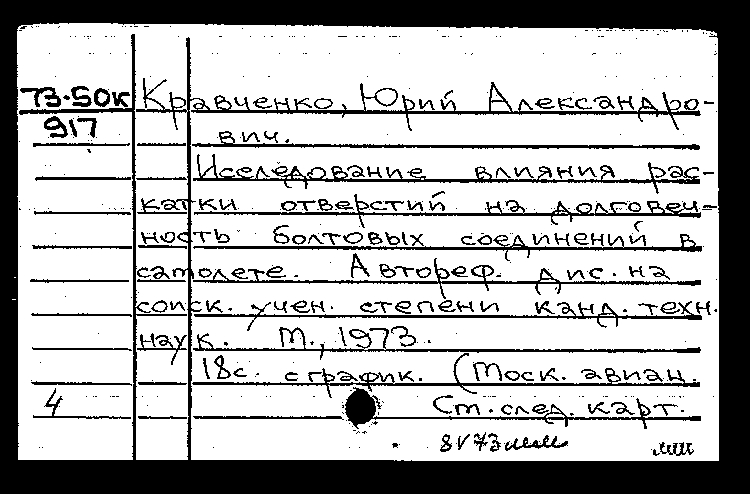 73-50к Кравченко, Юрий Александро-
917 вич.
Исследование влияния рас-
катки отверстий на долговеч-
ность болтовых соединений в
самолете. Автореф. дис. на
соиск. учен. степени канд. техн.
наук. М., 1973.
18с. с график. (Моск. авиац.
4 См. след. карт.
8 V 73